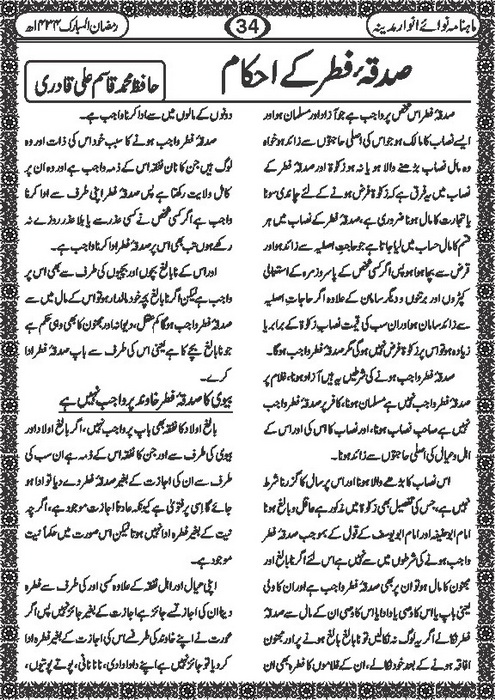 ماہنامہ نوائے انوارِ مدینہ
34
رمضان المبارک ۱۴۳۴ھ
صدقۂ فطر کے احکام
حافظ محمد قاسم علی قادری
صدقۂ فطر اس شخص پر واجب ہے جو آزاد اور مسلمان ہو اور
ایسے نصاب کا مالک ہو جو اس کی اصلی حاجتوں سے زائد ہو خواہ
وہ مال نصاب بڑھنے والا ہو یا نہ ہو زکوٰۃ اور صدقۂ فطر کے
نصاب میں یہ فرق ہے کہ زکوٰۃ فرض ہونے کے لئے چاندی سونا
یا تجارت کا مال ہونا ضروری ہے، صدقۂ فطر کے نصاب میں ہر
قسم کا مال حساب میں لیا جاتا ہے جو حاجتِ اصلیہ سے زائد ہو اور
قرض سے بچا ہوا ہو پس اگر کسی شخص کے پاس روزمرہ کے استعمالی
کپڑوں اور برتنوں و دیگر سامان کے علاوہ اگر حاجاتِ اصلیہ
سے زائد سامان ہو اور ان سب کی قیمت نصابِ زکوٰۃ کے برابر یا
زیادہ ہو تو اس پر زکوٰۃ فرض نہیں ہوگی مگر صدقۂ فطر واجب ہوگا۔
صدقۂ فطر واجب ہونے کی شرطیں یہ ہیں آزاد ہونا، غلام پر
واجب نہیں ہے مسلمان ہونا، کافر پر صدقۂ فطر واجب
نہیں ہے صاحبِ نصاب ہونا، اور نصاب کا اس کی اور اس کے
اہل و عیال کی اصلی حاجتوں سے زائد ہونا۔
اس نصاب کا بڑھنے والا ہونا اور اس پر سال کا گزرنا شرط
نہیں ہے، جس کی تفصیل بھی زکوٰۃ میں مذکور ہے عاقل و بالغ ہونا
امام ابوحنیفہ اور امام ابویوسف کے قول کے بموجب صدقۂ فطر
واجب ہونے کی شرطوں میں سے نہیں ہے اس لئے اگر نابالغ اور
مجنون کا مال ہو تو ان پر بھی صدقۂ فطر واجب ہے اور ان کا ولی
یعنی باپ یا اس کا وصی یا دادا یا اس کا وصی ان کے مال سے صدقۂ
فطر نکالے اگر یہ لوگ نہ نکالیں تو نابالغ بالغ ہونے پر اور مجنون
افاقہ ہونے کے بعد خود نکالے، ان کے غلاموں کا فطرہ بھی ان
دونوں کے مالوں میں سے ادا کرنا واجب ہے۔
صدقۂ فطر واجب ہونے کا سبب خود اس کی ذات اور وہ
لوگ ہیں جن کا نان نفقہ اس کے ذمہ واجب ہے اور وہ ان پر
کامل ولایت رکھتا ہے پس صدقۂ فطر اپنی طرف سے ادا کرنا
واجب ہے اگر کسی شخص نے کسی عذر سے یا بلا عذر روزے نہ
رکھے ہوں تب بھی اس پر صدقۂ فطر ادا کرنا واجب ہے۔
اور اس کے نابالغ بچوں اور بچیوں کی طرف سے بھی اس پر
واجب ہے لیکن اگر نابالغ بچہ خود مالدار ہو تو اس کے مال میں سے
صدقۂ فطر واجب ہوگا کم عقل، دیوانہ اور مجنون کا بھی وہی حکم ہے
جو نابالغ بچے کا ہے یعنی اس کی طرف سے باپ صدقۂ فطر ادا
کرے۔
بیوی کا صدقۂ فطر خاوند پر واجب نہیں ہے
بالغ اولاد کا نفقہ بھی باپ پر واجب نہیں، اگر بالغ اولاد اور
بیوی کی طرف سے اور جن کا نفقہ اس کے ذمہ ہے ان سب کی
طرف سے ان کی اجازت کے بغیر صدقۂ فطر دے دیا تو ادا ہو
جائے گا اسی پر فتویٰ ہے کیونکہ عادتاً اجازت موجود ہے، اگرچہ
نیت کے بغیر فطرہ ادا نہیں ہوتا لیکن اس صورت میں حکماً نیت
موجود ہے۔
اپنی عیال اور اہلِ نفقہ کے علاوہ کسی اور کی طرف سے فطرہ
دینا ان کی اجازت سے جائز ہے اجازت کے بغیر جائز نہیں پس اگر
عورت نے اپنے خاوند کی طرف سے اس کی اجازت کے بغیر فطرہ ادا
کر دیا تو جائز نہیں ہے اپنے دادا دادی، نانا نانی، پوتے پوتیوں،